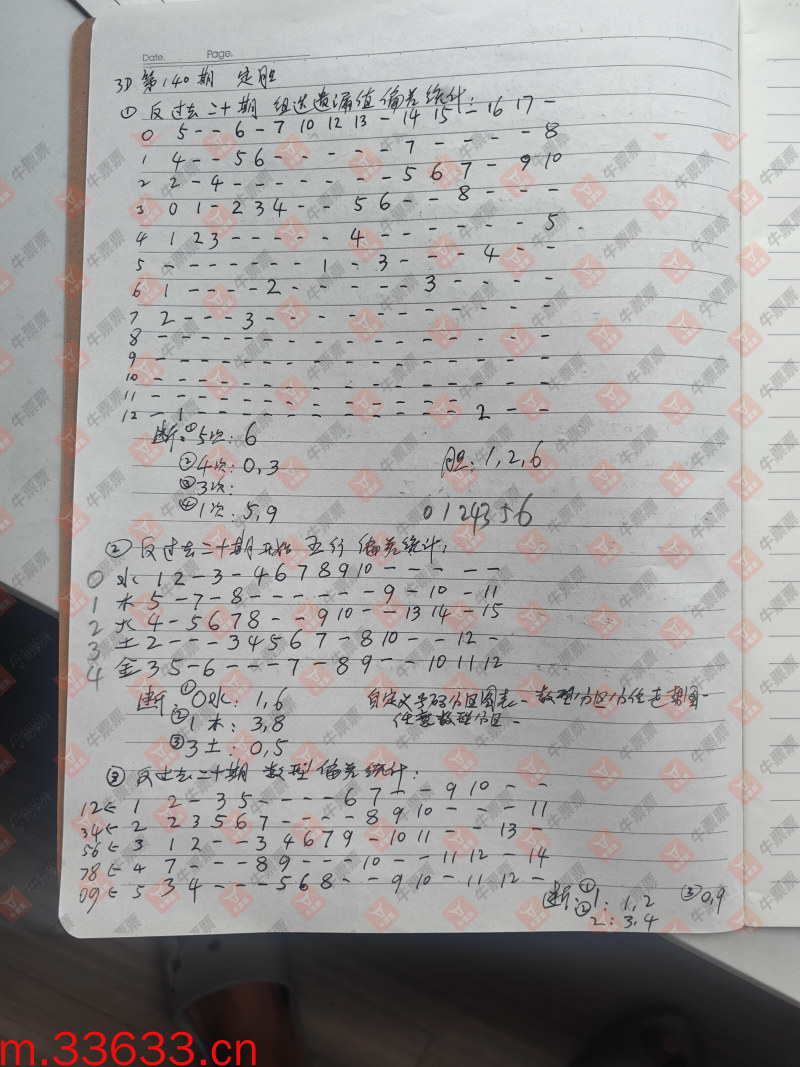 Date. Page.
3D 第140期 定胆
① 反过去二十期 组选遗漏值偏差统计:
0 5 - - 6 - 7 10 12 13 - 14 15 - 16 17 -
1 4 - - 5 6 - - - - - 7 - - - - 8
2 2 - 4 - - - - - - - 5 6 7 - 9 10
3 0 1 - 2 3 4 - - 5 6 - - 8 - - -
4 1 2 3 - - - - - 4 - - - - - - 5
5 - - - - - - - 1 - 3 - - - 4 - -
6 1 - - - - 2 - - - - - 3 - - - -
7 2 - - - 3 - - - - - - - - - - -
8 - - - - - - - - - - - - - - - -
9 - - - - - - - - - - - - - - - -
10 - - - - - - - - - - - - - - - -
11 - - - - - - - - - - - - - -
12 - 1 - - - - - - - - - - - 2 - -
断: ① 5次: 6
② 4次: 0,3 胆: 1,2,6
③ 3次:
④ 1次: 5,9 0124356
② 反过去二十期开始 五行 偏差统计:
0 水 1 2 - 3 - 4 6 7 8 9 10 - - - - -
1 木 5 - 7 - 8 - - - - - - 9 - 10 - 11
2 火 4 - 5 6 7 8 - - 9 10 - - 13 14 - 15
3 土 2 - - - 3 4 5 6 7 - 8 10 - - 12 -
4 金 3 5 - 6 - - - 7 - 8 9 - - 10 11 12
断: ① 0水: 1,6 自定义号码分区图表 - 数型分区分位走势图 -
② 1木: 3,8 任意数型分区 -
③ 3土: 0,5
③ 反过去二十期 数型偏差统计:
12← 1 2 - 3 5 - - - - 6 7 - - 9 10 - -
34← 2 2 3 5 6 7 - - - - 8 9 10 - - - 11
56← 3 1 2 - - 3 4 6 7 9 - 10 11 - - 13 -
78← 4 7 - - - 8 9 - - - 10 - - 11 12 - 14
09← 5 3 4 - - - 5 6 8 - - 9 10 - 11 12 -
断: ① 1: 1,2 ③ 0,9
② 2: 3,4
牛票票
m.33633.cn